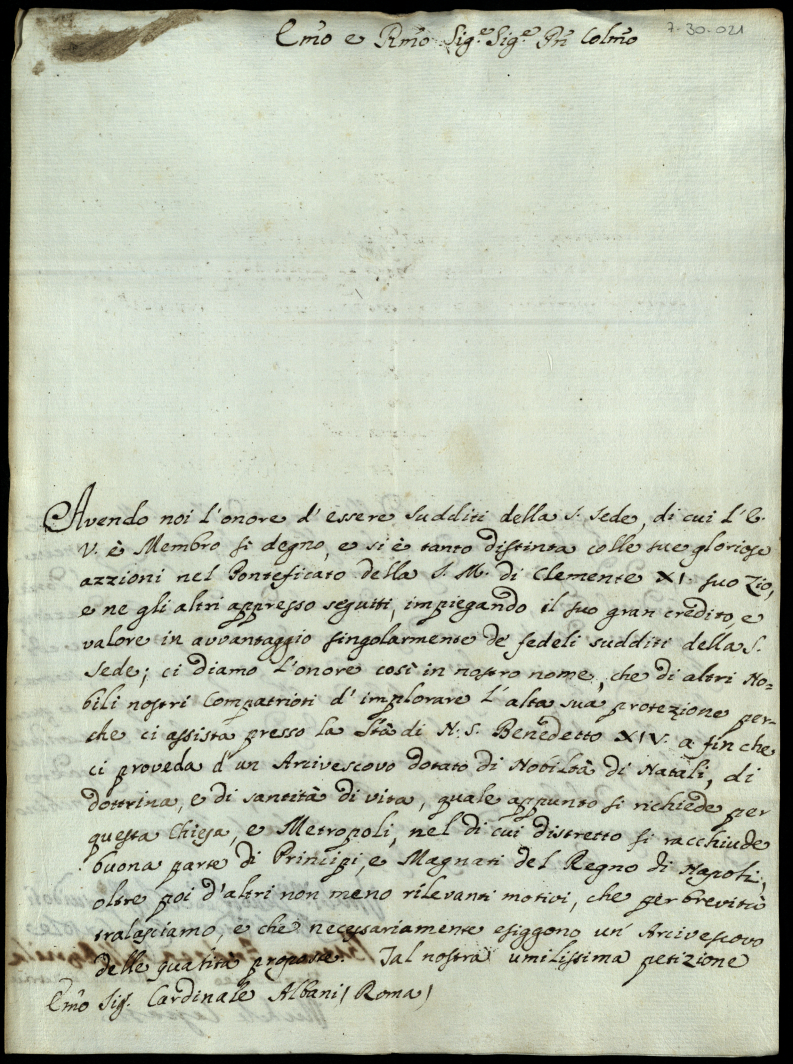 Emo e Rmo Sig.re Sig.re Prn Colmo
7-30-021
Avendo noi l'onore d'essere sudditi della S. Sede, di cui l'E.
V. è Membro si degno, e si è tanto distinta colle sue gloriose
azzioni nel Ponteficato della S. M. di Clemente XI. suo Zio,
e ne gli altri appresso seguiti, impiegando il suo gran credito, e
valore in avvantaggio singolarmente de' fedeli sudditi della S.
Sede; ci diamo l'onore così in nostro nome, che di altri No=
bili nostri Compatrioti d'implorare l'alta sua protezione per-
che ci assista presso la Stà di N. S. Benedetto XIV. a fin che
ci proveda d'un Arcivescovo dotato di Nobiltà di Natali, di
dottrina, e di santità di vita, quale appunto si richiede per
questa Chiesa, e Metropoli, nel di cui distretto si racchiude
buona parte di Principi, e Magnati del Regno di Napoli,
oltre poi d'altri non meno rilevanti motivi, che per brevità
tralasciamo, e che necessariamente esiggono un' Arcivescovo
delle qualità proposte. Tal nostra umilissima petizione
Emo Sig. Cardinale Albani (Roma)